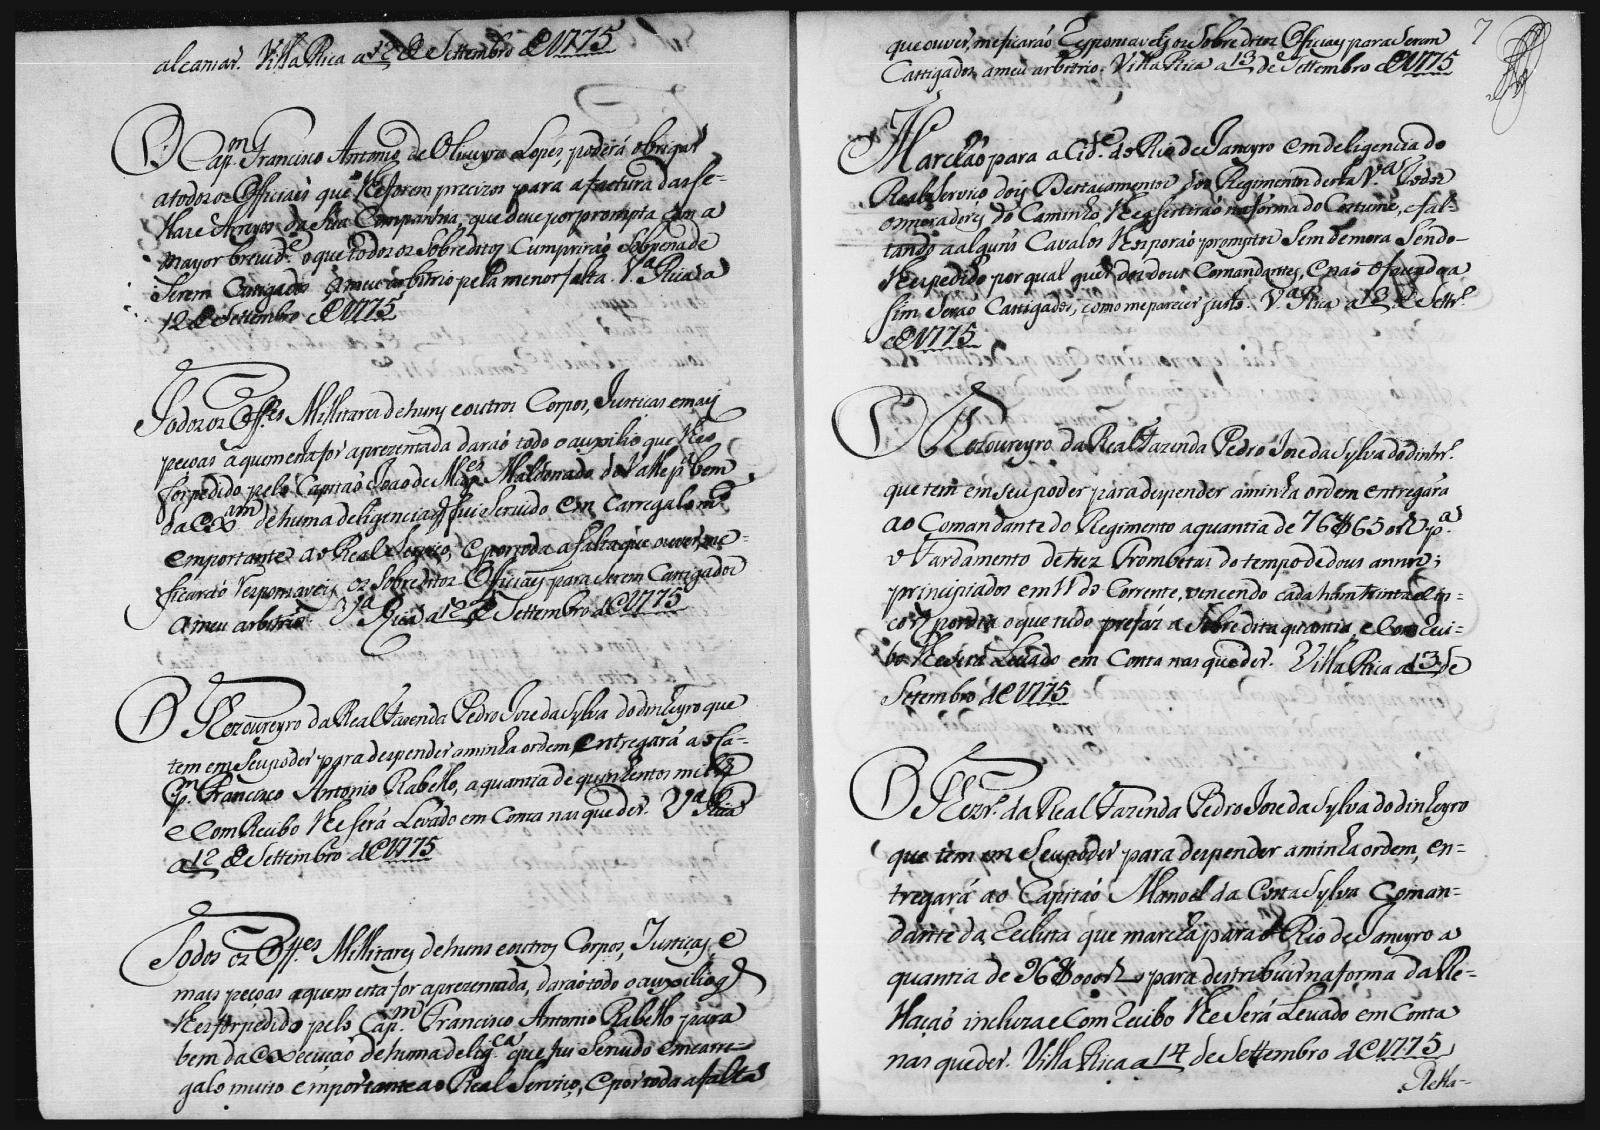 alcansar. Villa Rica a 12 de Settembro de 1775
O Cap.m Francisco Antonio de Oliveyra Lopes poderá obrigar
a todos os Officiais que lhe forem precizos para a factura das Se-
lhas e Arreyos da sua Companhia, que deve por prompta com a
mayor brevid.e o que todos os Sobreditos Cumprirão Sobpena de
Serem Castigados a meu arbitrio pela menor falta. V.a Rica a
12 de Settembro de 1775
Todos os Off.es Millitares de huns e outros Corpos, Justicas e mais
pecoas a quem esta for aprezentada darão todo o auxilio que lhes
for pedido pelo Capitão João de Maldonado do Valle p.a bem
da de huma deligencia q fui Servido em Carregalo m.to
emportante ao Real Serviço, e por toda a falta que ouver, me-
ficarão responsaveis os Sobreditos Officiais para Serem Castigados
a meu arbitrio V.a Rica a 12 de Settembro de 1775
O Thezoureyro da Real Fazenda Pedro Joze da Sylva do dinheyro que
tem em Seu poder para despender a minha ordem, entregará ao Ca-
p.m Francisco Antonio Rabello, a quantia de quinhentos mil r.s
e Com Recibo lhe Será Levado em Conta nas que der. V.a Rica
a 12 de Settembro de 1775
Todos os Off.es Millitares de huns e outros Corpos, Justiças, e
mais pecoas a quem esta for aprezentada, darão todo o auxilio q
lhes for pedido pelo Cap.m Francisco Antonio Rabello para
bem da execução de huma delig.ca que fui Servido encarre-
galo muito emportante ao Real Serviço, e por toda a falta
7
que ouver, me ficarão Responsaveis os Sobreditos Officiais para Serem
Castigados a meu arbitrio. Villa Rica a 13 de Settembro de 1775
Marchão para a Cid.e do Rio de Janeyro em deligencia do
Real Serviço dois Destacamentos dos Regimentos desta V.a todos
os moradores do Caminho lhe assistirão na forma do Costume, e fal-
tando a alguns Cavalos lhes porão promptos Sem demora Sendo-
lhes pedido por qual quer dos dous Comandantes, e não o fazendo a
sim Serão Castigados, como me parecer justo. V.a Rica a 13 de Settr.o
de 1775
O Thezoureyro da Real Fazenda Pedro Joze da Sylva do dinhr.o
que tem em Seu poder para despender a minha ordem entregará
ao Comandante do Regimento a quantia de 76$650 r.s p.a
o Fardamento de trez Trombetas do tempo de dous annos;
principiados em 11 do Corrente, vencendo cada hum trinta e sin-
co r.s por dia o que tudo prefaz a Sobredita quantia e Com Reci-
bo lhe Será Levado em Conta nas que der. Villa Rica a 13 de
Setembro de 1775
O Thezr.o da Real Fazenda Pedro Joze da Sylva do dinheyro
que tem em Seu poder para despender a minha ordem, en-
tregará ao Capitão Manoel da Costa Sylva Coman-
dante da Recluta que marcha para o Rio de Janeyro a
quantia de 96$000 r.s para destribuir na forma da Re-
lação incluza e Com Recibo lhe Será Levado em Conta
nas que der. Villa Rica a 14 de Settembro de 1775
Rella-